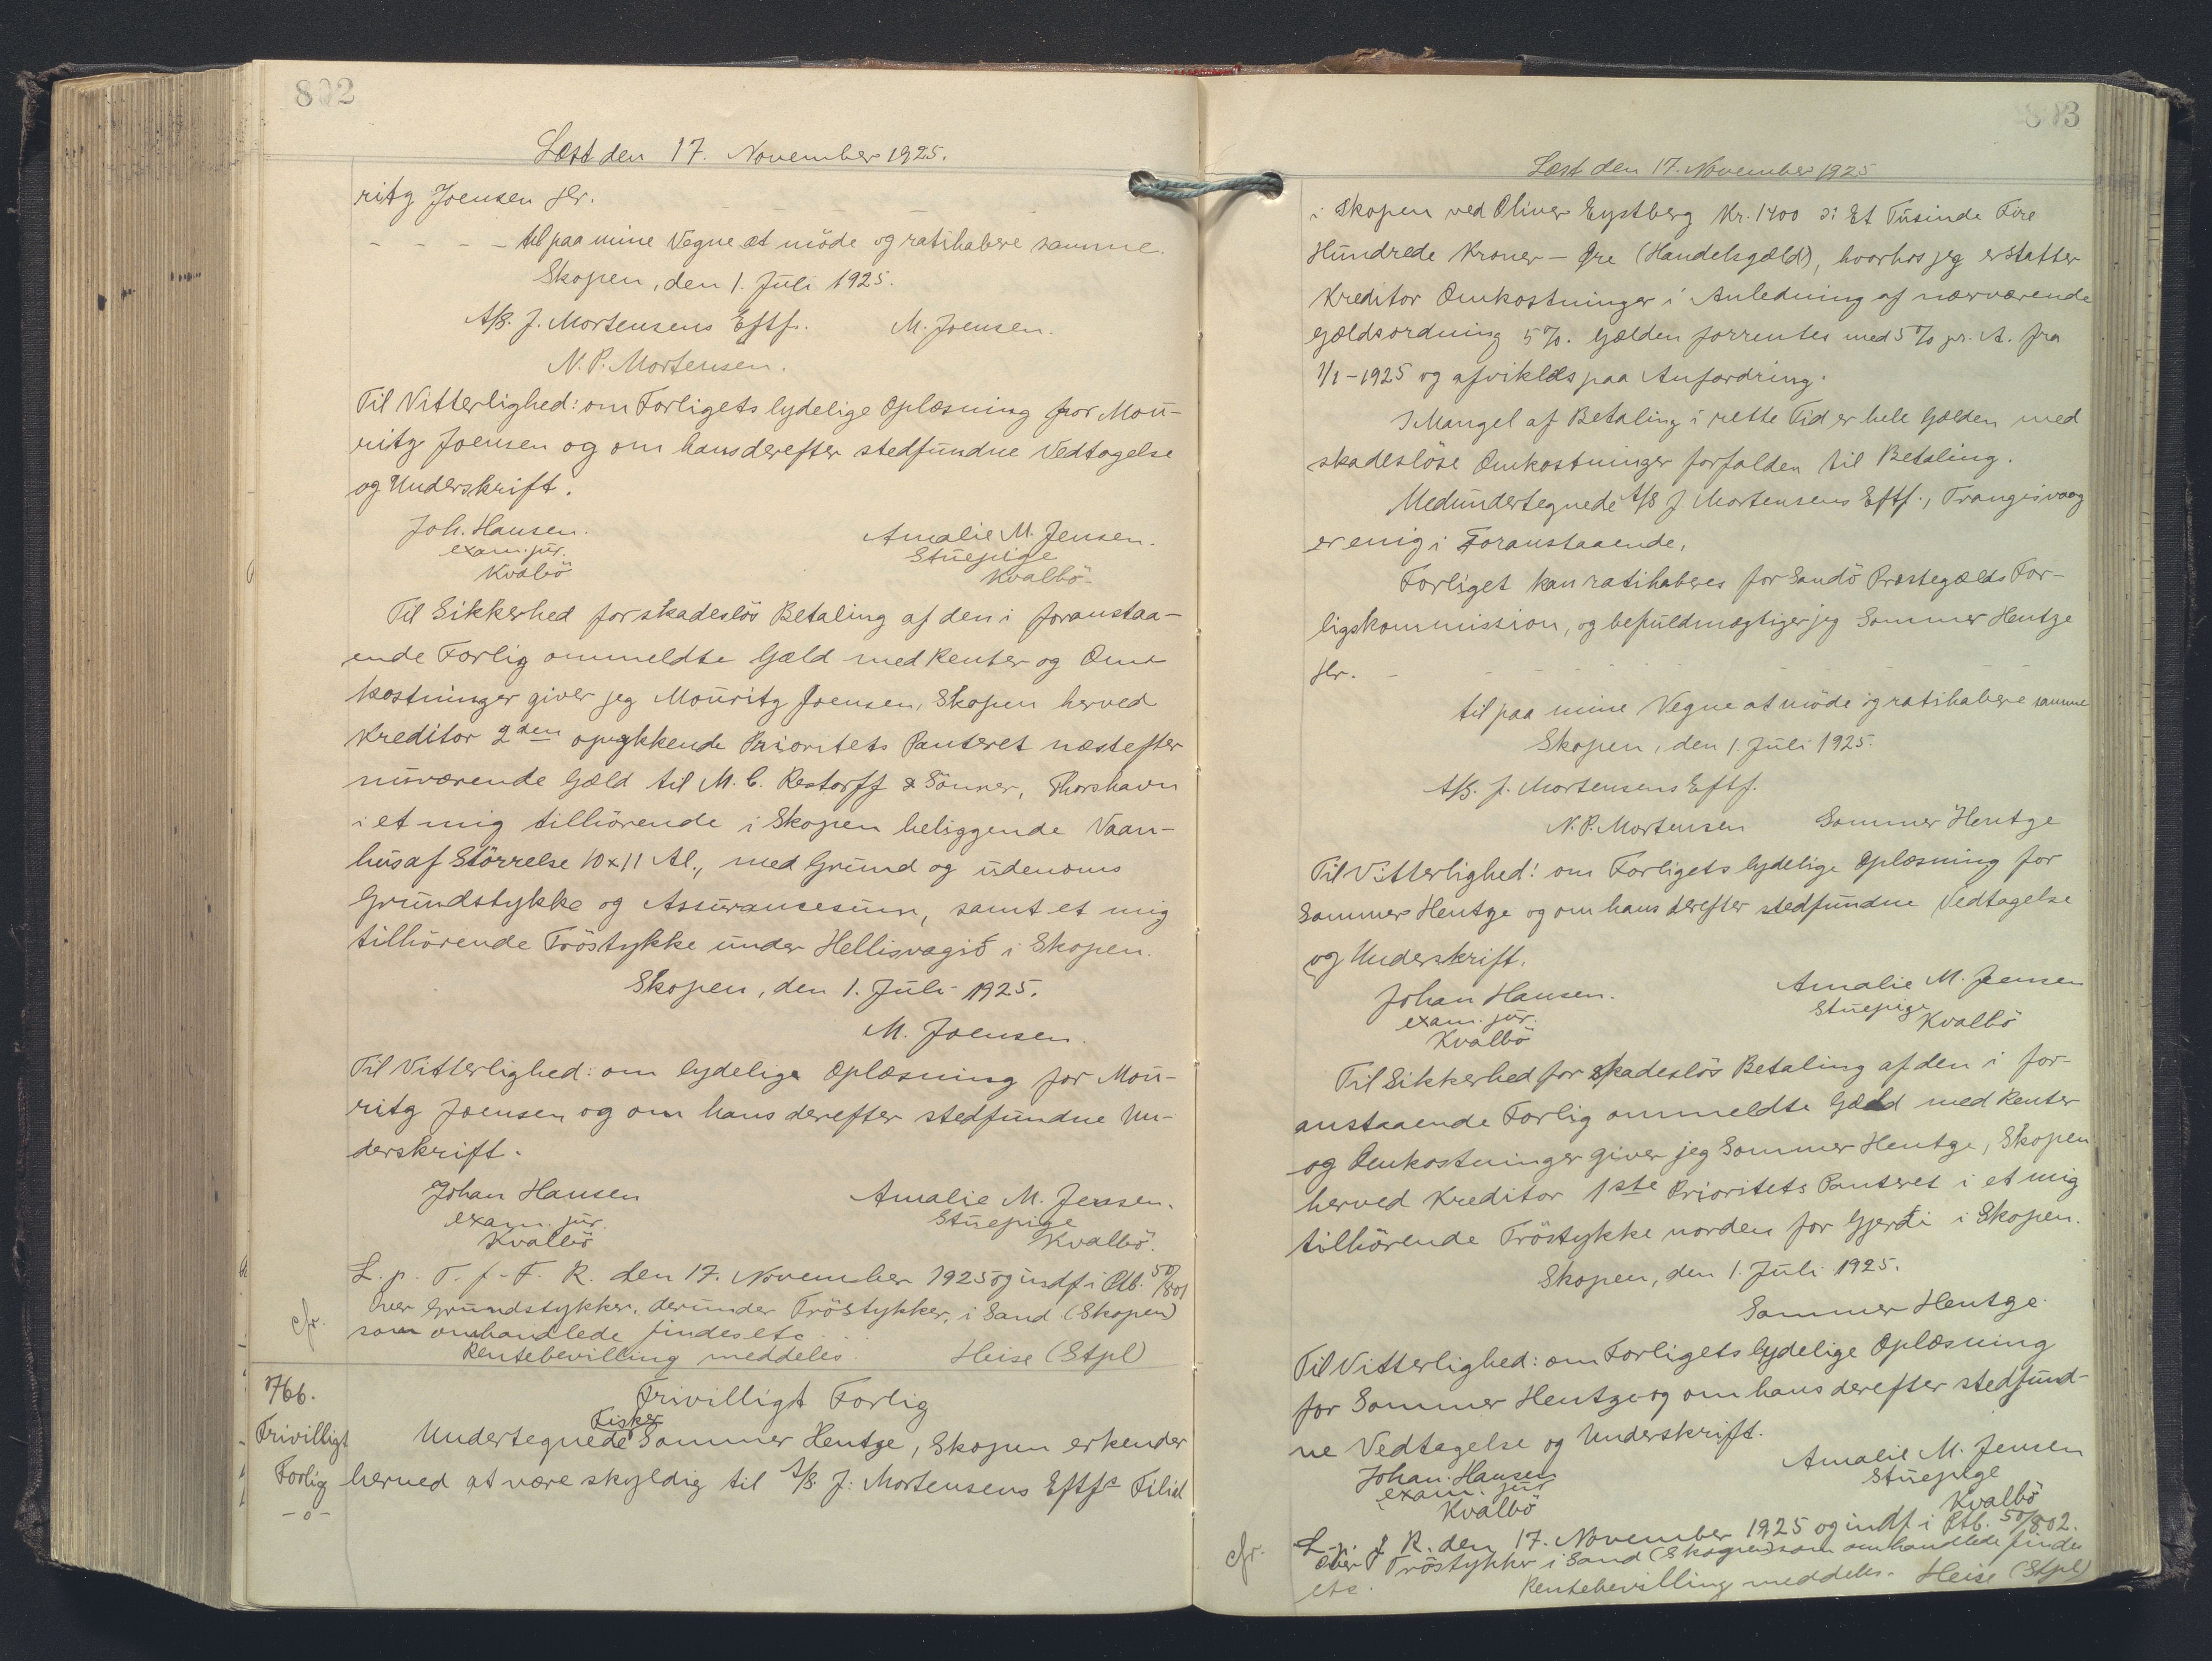 802
Læst den 17. November 1925.
ritz Joensen Hr.
- - - - til paa mine Vegne at möde og ratihabere samme.
Skopen, den 1. Juli 1925.
A/S. J. Mortensens Eftf. M. Joensen.
N. P. Mortensen.
Til Vitterlighed: om Forligets lydelige Oplæsning for Mou-
ritz Joensen og om hans derefter stedfundne Vedtagelse
og Underskrift.
Joh. Hansen. Amalie M. Jensen.
exam. jur. Stuepige
Kvalbö Kvalbö-
Til Sikkerhed for skadeslös Betaling af den i foranstaa-
ende Forlig ommeldte Gæld med Renter og Om-
kostninger giver jeg Mouritz Joensen, Skopen herved
Kreditor 2den oprykkende Prioritets Panteret næstefter
nuværende Gæld til M. C. Restorff & Sönner, Thorshavn
i et mig tilhörende i Skopen beliggende Vaan-
hus af Störrelse 10x11 Al., med Grund og udenoms
Grundstykke og Assurancesum, samt et mig
tilhörende Tröstykke under Hellisvagið i Skopen.
Skopen, den 1. Juli 1925.
M. Joensen.
Til Vitterlighed: om lydelige Oplæsning for Mou-
ritz Joensen og om hans derefter stedfundne Un-
derskrift.
Johan Hansen Amalie M. Jensen.
exam. jur. Stuepige
Kvalbö Kvalbö.
L. p. T. f. F. R. den 17. November 1925 og indf i Ptb. 50/801
hver Grundstykker, derunder Tröstykker, i Sand (Skopen)
cfr. som omhandlede findes etc
Rentebevilling meddeles. Heise (Stpl)
766. Frivilligt Forlig
Fisker
Frivilligt Undertegnede Sommer Hentze, Skopen erkender
Forlig herved at være skyldig til A/S. J. Mortensens Eftfs Filial
-o-
803
Læst den 17. November 1925
i Skopen ved Oliver Eystberg Kr. 1400 ɔ: Et Tusinde Fire
Hundrede Kroner - Øre (Handelsgæld), hvorhos jeg erstatter
Kreditor Omkostninger i Anledning af nærværende
Gældsordning 5%. Gælden forrentes med 5% pr. A. fra
1/1-1925 og afvikles paa Anfordring.
I Mangel af Betaling i rette Tid er hele Gælden med
skadeslöse Omkostninger forfalden til Betaling.
Medundertegnede A/S J. Mortensens Eftf., Trangisvaag
er enig i Foranstaaende.
Forliget kan ratihaberes for Sandö Præstegælds For-
ligskommission, og befuldmægtiger jeg Sommer Hentze
Hr. -
til paa mine Vegne at möde og ratihabere samme
Skopen, den 1. Juli 1925.
A/S. J. Mortensens Eftf.
N. P. Mortensen Sommer Hentze
Til Vitterlighed: om Forligets lydelige Oplæsning for
Sommer Hentze og om hans derefter stedfundne Vedtagelse
og Underskrift.
Johan Hansen. Amalie M. Jensen
exam. jur. Stuepige
Kvalbö Kvalbö
Til Sikkerhed for skadeslös Betaling af den i for-
anstaaende Forlig ommeldte Gæld med Renter
og Omkostninger giver jeg Sommer Hentze, Skopen
herved Kreditor 1ste Prioritets Panteret i et mig
tilhörende Tröstykke norden for Gjerði i Skopen.
Skopen, den 1. Juli 1925.
Sommer Hentze.
Til Vitterlighed: om Forligets lydelige Oplæsning
for Sommer Hentze og om hans derefter stedfund-
ne Vedtagelse og Underskrift.
Johan Hansen Amalie M. Jensen
exam. jur Stuepige
Kvalbö Kvalbö
L. p. R. den 17. November 1925 og indf i Ptb. 50/802.
cfr. Tröstykker i Sand (Skopen) som omhandlede findes
etc. Rentebevilling meddeles. Heise (Stpl)